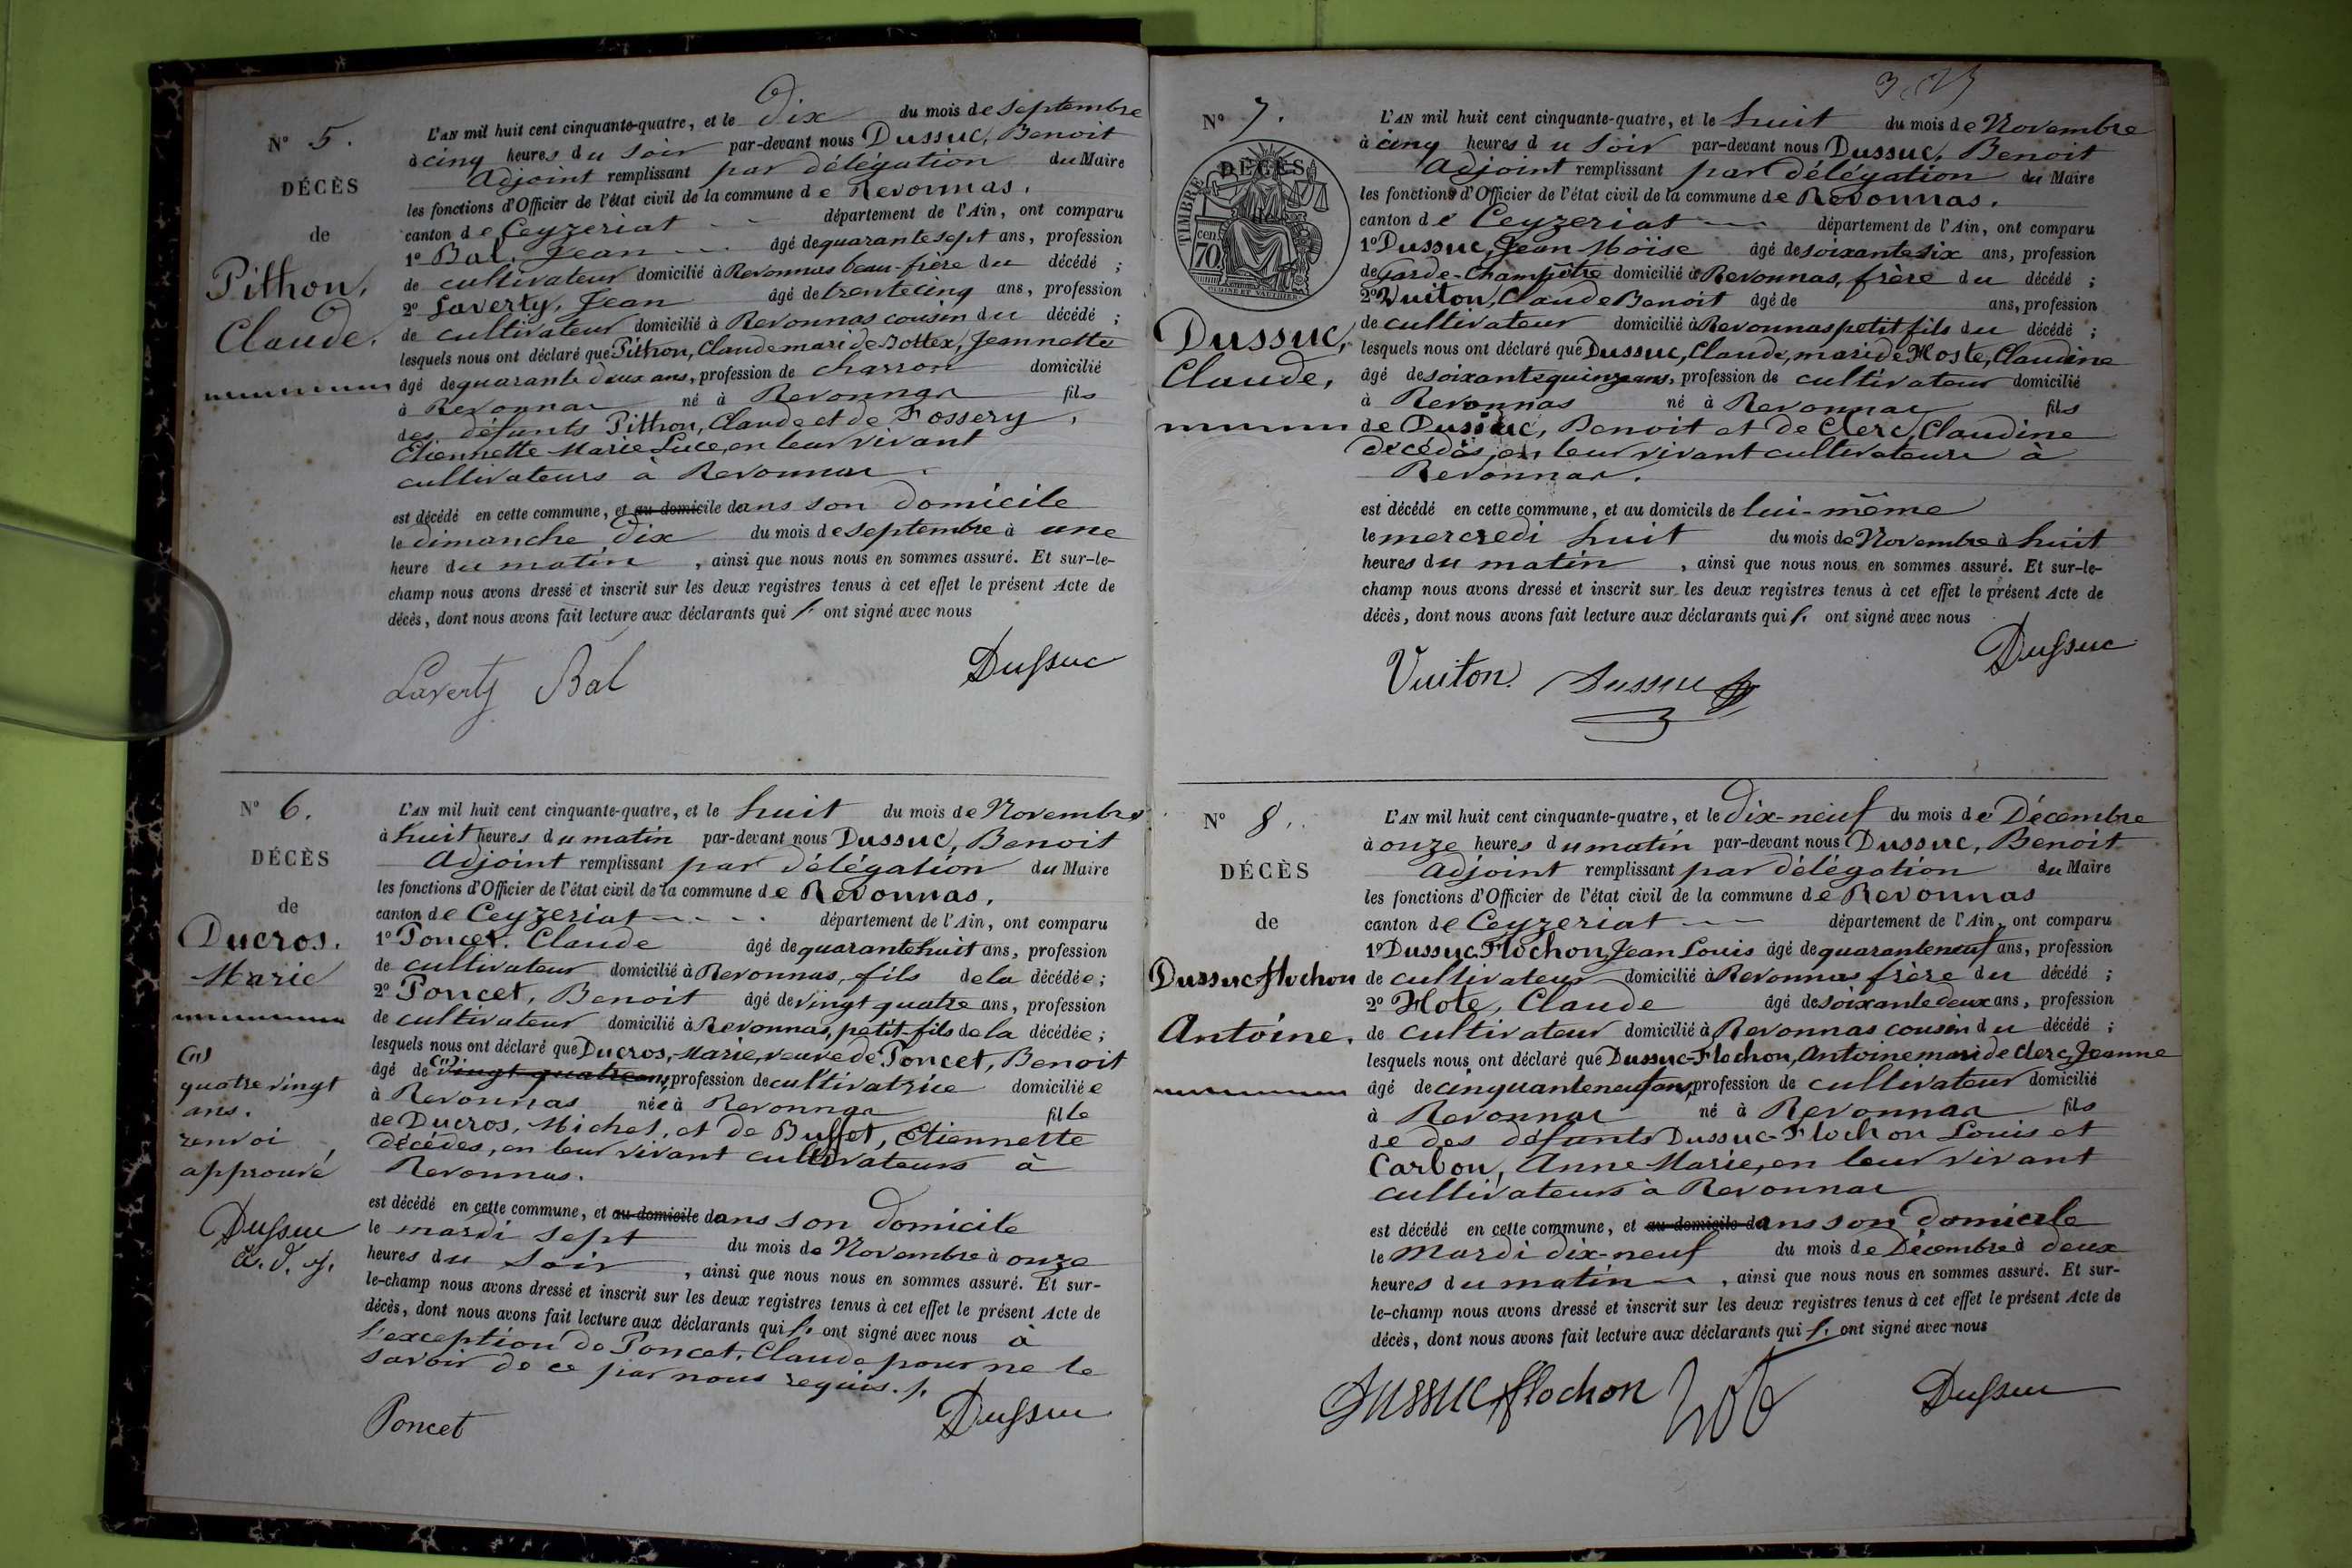 N° 5.
DÉCÈS
de
Pithon,
Claude.
L'AN mil huit cent cinquante-quatre, et le Dix du mois de septembre
à cinq heures du soir par-devant nous Dussuc, Benoit
Adjoint remplissant par délégation du Maire
les fonctions d'Officier de l'état civil de la commune de Revonnas.
canton de Ceyzeriat département de l'Ain, ont comparu
1° Bal, Jean âgé de quarante sept ans, profession
de cultivateur domicilié à Revonnas beau-frère du décédé ;
2° Laverty, Jean âgé de trente cinq ans, profession
de cultivateur domicilié à Revonnas cousin du décédé ;
lesquels nous ont déclaré que Pithon, Claude mari de Bottex, Jeannette
âgé de quarante deux ans, profession de charron domicilié
à Revonnas né à Revonnas fils
des défunts Pithon, Claude et de Fossery,
Etiennette Marie Luce, en leur vivant
cultivateurs à Revonnas.
est décédé en cette commune, et au domicile dans son domicile
le dimanche dix du mois de septembre à une
heure du matin , ainsi que nous nous en sommes assuré. Et sur-le-
champ nous avons dressé et inscrit sur les deux registres tenus à cet effet le présent Acte de
décès, dont nous avons fait lecture aux déclarants qui ont signé avec nous
Laverty Bal Dussuc
N° 6.
DÉCÈS
de
Ducros.
Marie
(1)
quatre vingt
ans.
renvoi
approuvé
Dussuc
L'AN mil huit cent cinquante-quatre, et le huit du mois de Novembre
à huit heures du matin par-devant nous Dussuc, Benoit
Adjoint remplissant par délégation du Maire
les fonctions d'Officier de l'état civil de la commune de Revonnas.
canton de Ceyzeriat département de l'Ain, ont comparu
1° Poncet, Claude âgé de quarante huit ans, profession
de cultivateur domicilié à Revonnas, fils de la décédée ;
2° Poncet, Benoit âgé de vingt quatre ans, profession
de cultivateur domicilié à Revonnas, petit-fils de la décédée ;
lesquels nous ont déclaré que Ducros, Marie, veuve de Poncet, Benoit
âgé de (1) vingt quatre ans, profession de cultivatrice domiciliée
à Revonnas née à Revonnas fille
de Ducros, Michel, et de Buffet, Etiennette
décédés, en leur vivant cultivateurs à
Revonnas.
est décédé en cette commune, et au domicile dans son domicile
le mardi sept du mois de Novembre à onze
heures du soir , ainsi que nous nous en sommes assuré. Et sur-
le-champ nous avons dressé et inscrit sur les deux registres tenus à cet effet le présent Acte de
décès, dont nous avons fait lecture aux déclarants qui ont signé avec nous à
l'exception de Poncet, Claude pour ne le
savoir de ce par nous requis.
Poncet Dussuc
N° 7.
DÉCÈS
TIMBRE
70 cen
Dussuc,
Claude,
L'AN mil huit cent cinquante-quatre, et le huit du mois de Novembre
à cinq heures du soir par-devant nous Dussuc, Benoit
Adjoint remplissant par délégation du Maire
les fonctions d'Officier de l'état civil de la commune de Revonnas.
canton de Ceyzeriat département de l'Ain, ont comparu
1° Dussuc, Jean Moïse âgé de soixante six ans, profession
de Garde-Champêtre domicilié à Revonnas, frère du décédé ;
2° Vuiton, Claude Benoit âgé de ans, profession
de cultivateur domicilié à Revonnas petit fils du décédé ;
lesquels nous ont déclaré que Dussuc, Claude, mari de Hoste, Claudine
âgé de soixante quinze ans, profession de cultivateur domicilié
à Revonnas né à Revonnas fils
de Dussuc, Benoit et de Clerc, Claudine
décédés, en leur vivant cultivateurs à
Revonnas.
est décédé en cette commune, et au domicile de lui-même
le mercredi huit du mois de Novembre à huit
heures du matin , ainsi que nous nous en sommes assuré. Et sur-le-
champ nous avons dressé et inscrit sur les deux registres tenus à cet effet le présent Acte de
décès, dont nous avons fait lecture aux déclarants qui ont signé avec nous
Vuiton Dussuc Dussuc
N° 8.
DÉCÈS
de
Dussuc flochon
Antoine.
L'AN mil huit cent cinquante-quatre, et le Dix-neuf du mois de Décembre
à onze heures du matin par-devant nous Dussuc, Benoit
Adjoint remplissant par délégation du Maire
les fonctions d'Officier de l'état civil de la commune de Revonnas
canton de Ceyzeriat département de l'Ain, ont comparu
1° Dussuc Flochon, Jean Louis âgé de quarante neuf ans, profession
de cultivateur domicilié à Revonnas frère du décédé ;
2° Hote, Claude âgé de soixante deux ans, profession
de cultivateur domicilié à Revonnas cousin du décédé ;
lesquels nous ont déclaré que Dussuc-Flochon, Antoine mari de Clerc, Jeanne
âgé de cinquante neuf ans, profession de cultivateur domicilié
à Revonnas né à Revonnas fils
de des défunts Dussuc-Flochon Louis et
Carbon, Anne Marie, en leur vivant
cultivateurs à Revonnas
est décédé en cette commune, et au domicile dans son domicile
le Mardi dix-neuf du mois de Décembre à deux
heures du matin , ainsi que nous nous en sommes assuré. Et sur-
le-champ nous avons dressé et inscrit sur les deux registres tenus à cet effet le présent Acte de
décès, dont nous avons fait lecture aux déclarants qui ont signé avec nous
Dussuc flochon hote Dussuc